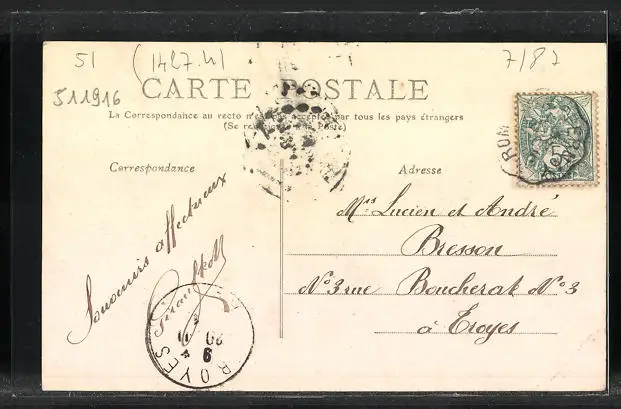 51 (1427.4) 7/87
511916
CARTE POSTALE
La Correspondance au recto n'est pas acceptée par tous les pays étrangers
(Se renseigner à la Poste)
Correspondance Adresse
Souvenirs affectueux
Mrs Lucien et André
Bresson
No 3 rue Boucherat No 3
à Troyes
ROM
TROYES